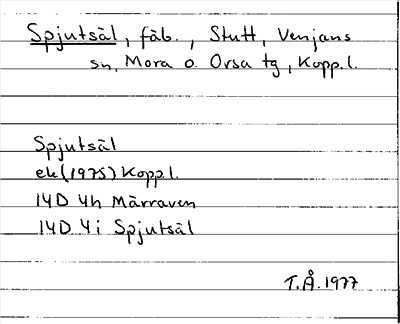 Spjutsäl, fäb., Stutt, Venjans
sn, Mora o. Orsa tg, Kopp.l.
Spjutsäl
ek (1975) Kopp.l.
14D 4h Märraven
14D 4i Spjutsäl
T.Å. 1977